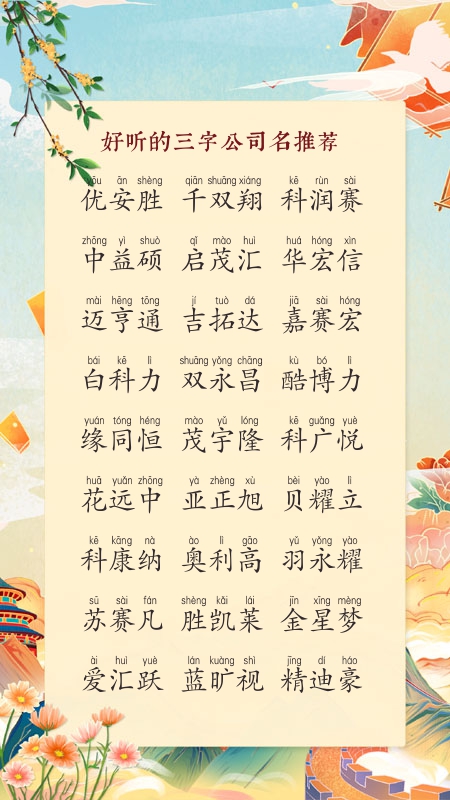 好听的三字公司名推荐
yōu ān shèng qiān shuāng xiáng kē rùn sài
优安胜 千双翔 科润赛
zhōng yì shuò qǐ mào huì huá hóng xìn
中益硕 启茂汇 华宏信
mài hēng tōng jí tuò dá jiā sài hóng
迈亨通 吉拓达 嘉赛宏
bái kē lì shuāng yǒng chāng kù bó lì
白科力 双永昌 酷博力
yuán tóng héng mào yǔ lóng kē guǎng yuè
缘同恒 茂宇隆 科广悦
huā yuǎn zhōng yà zhèng xù bèi yào lì
花远中 亚正旭 贝耀立
kē kāng nà ào lì gāo yǔ yǒng yào
科康纳 奥利高 羽永耀
sū sài fán shèng kǎi lái jīn xīng mèng
苏赛凡 胜凯莱 金星梦
ài huì yuè lán kuàng shì jīng dí háo
爱汇跃 蓝旷视 精迪豪